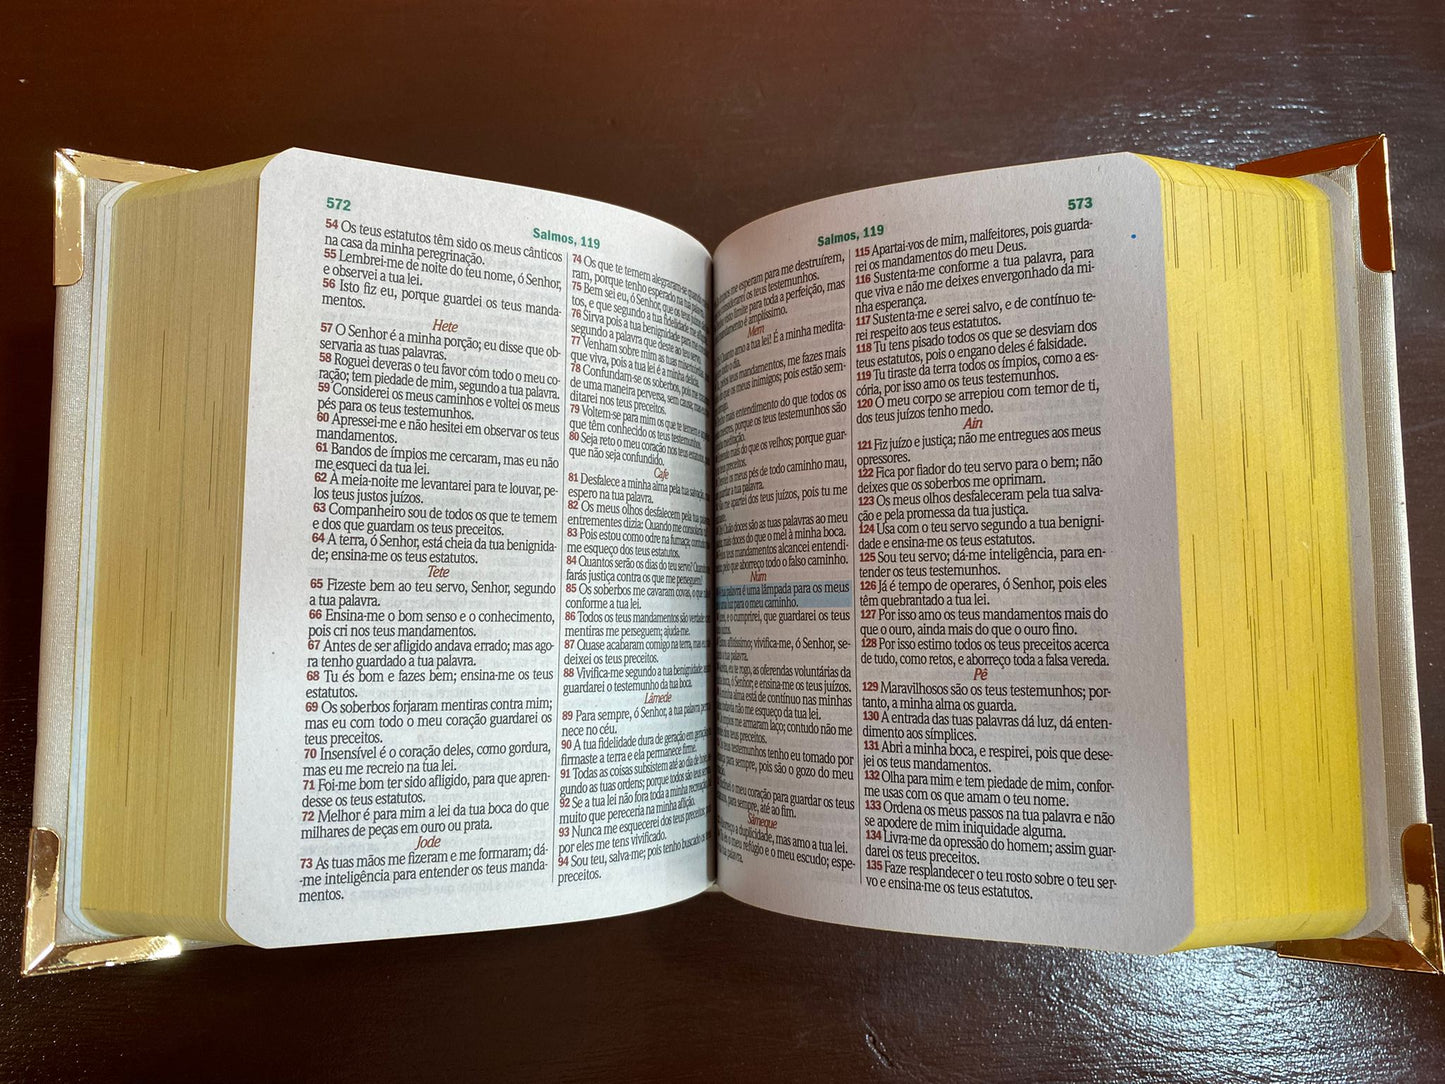 572
Salmos, 119
54 Os teus estatutos têm sido os meus cânticos
na casa da minha peregrinação.
55 Lembrei-me de noite do teu nome, ó Senhor,
e observei a tua lei.
56 Isto fiz eu, porque guardei os teus manda-
mentos.
Hete
57 O Senhor é a minha porção; eu disse que ob-
servaria as tuas palavras.
58 Roguei deveras o teu favor com todo o meu co-
ração; tem piedade de mim, segundo a tua palavra.
59 Considerei os meus caminhos e voltei os meus
pés para os teus testemunhos.
60 Apressei-me e não hesitei em observar os teus
mandamentos.
61 Bandos de ímpios me cercaram, mas eu não
me esqueci da tua lei.
62 À meia-noite me levantarei para te louvar, pe-
los teus justos juízos.
63 Companheiro sou de todos os que te temem
e dos que guardam os teus preceitos.
64 A terra, ó Senhor, está cheia da tua benignida-
de; ensina-me os teus estatutos.
Tete
65 Fizeste bem ao teu servo, Senhor, segundo
a tua palavra.
66 Ensina-me o bom senso e o conhecimento,
pois cri nos teus mandamentos.
67 Antes de ser afligido andava errado; mas ago-
ra tenho guardado a tua palavra.
68 Tu és bom e fazes bem; ensina-me os teus
estatutos.
69 Os soberbos forjaram mentiras contra mim;
mas eu com todo o meu coração guardarei os
teus preceitos.
70 Insensível é o coração deles, como gordura,
mas eu me recreio na tua lei.
71 Foi-me bom ter sido afligido, para que apren-
desse os teus estatutos.
72 Melhor é para mim a lei da tua boca do que
milhares de peças em ouro ou prata.
Jode
73 As tuas mãos me fizeram e me formaram; dá-
-me inteligência para entender os teus manda-
mentos.
74 Os que te temem alegraram-se quando
ram, porque tenho esperado na tua
75 Bem sei eu, ó Senhor, que os teus
tos, e que segundo a tua fidelidade me
76 Sirva pois a tua benignidade para me
segundo a palavra que deste ao teu servo.
77 Venham sobre mim as tuas misericórdias
que viva, pois a tua lei é a minha delícia.
78 Confundam-se os soberbos, pois me
de uma maneira perversa, sem causa; mas
ditarei nos teus preceitos.
79 Voltem-se para mim os que te temem e
que têm conhecido os teus testemunhos.
80 Seja reto o meu coração nos teus estatutos,
que não seja confundido.
Cafe
81 Desfalece a minha alma pela tua salvação,
espero na tua palavra.
82 Os meus olhos desfalecem pela tua
entrementes dizia: Quando me consolarás
83 Pois estou como odre na fumaça; contudo
me esqueço dos teus estatutos.
84 Quantos serão os dias do teu servo? Quando
farás justiça contra os que me perseguem?
85 Os soberbos me cavaram covas, o que
conforme a tua lei.
86 Todos os teus mandamentos são verdade
mentiras me perseguem; ajuda-me.
87 Quase acabaram comigo na terra, mas eu
deixei os teus preceitos.
88 Vivifica-me segundo a tua benignidade;
guardarei o testemunho da tua boca.
Lâmede
89 Para sempre, ó Senhor, a tua palavra
nece no céu.
90 A tua fidelidade dura de geração em
firmaste a terra e ela permanece firme.
91 Todas as coisas subsistem até ao dia de
gundo as tuas ordens; porque todos são teus
92 Se a tua lei não fora toda a minha recreação,
muito que pereceria na minha aflição.
93 Nunca me esquecerei dos teus preceitos;
por eles me tens vivificado.
94 Sou teu, salva-me; pois tenho buscado os
preceitos.
573
Salmos, 119
me esperam para me destruírem,
considerarei os teus testemunhos.
limite para toda a perfeição, mas
mandamento é amplíssimo.
Mem
Quanto amo a tua lei! É a minha medita-
o dia.
teus mandamentos, me fazes mais
que os meus inimigos; pois estão sem-
mais entendimento do que todos os
mestres, porque os teus testemunhos são
meditação.
mais do que os velhos; porque guar-
preceitos.
os meus pés de todo caminho mau,
guardar a tua palavra.
Não me apartei dos teus juízos, pois tu me
Quão doces são as tuas palavras ao meu
mais doces do que o mel à minha boca.
teus mandamentos alcancei entendi-
pelo que aborreço todo o falso caminho.
Num
tua palavra é uma lâmpada para os meus
uma luz para o meu caminho.
e o cumprirei, que guardarei os teus
aflitíssimo; vivifica-me, ó Senhor, se-
tua palavra.
eu te rogo, as oferendas voluntárias da
boca, ó Senhor; e ensina-me os teus juízos.
minha alma está de contínuo nas minhas
todavia não me esqueço da tua lei.
ímpios me armaram laço; contudo não me
dos teus preceitos.
teus testemunhos tenho eu tomado por
para sempre, pois são o gozo do meu
o meu coração para guardar os teus
para sempre, até ao fim.
Sâmeque
a duplicidade, mas amo a tua lei.
o meu refúgio e o meu escudo; espe-
palavra.
115 Apartai-vos de mim, malfeitores, pois guarda-
rei os mandamentos do meu Deus.
116 Sustenta-me conforme a tua palavra, para
que viva e não me deixes envergonhado da mi-
nha esperança.
117 Sustenta-me e serei salvo, e de contínuo te-
rei respeito aos teus estatutos.
118 Tu tens pisado todos os que se desviam dos
teus estatutos, pois o engano deles é falsidade.
119 Tu tiraste da terra todos os ímpios, como a es-
cória, por isso amo os teus testemunhos.
120 O meu corpo se arrepiou com temor de ti,
dos teus juízos tenho medo.
Ain
121 Fiz juízo e justiça; não me entregues aos meus
opressores.
122 Fica por fiador do teu servo para o bem; não
deixes que os soberbos me oprimam.
123 Os meus olhos desfaleceram pela tua salva-
ção e pela promessa da tua justiça.
124 Usa com o teu servo segundo a tua benigni-
dade e ensina-me os teus estatutos.
125 Sou teu servo; dá-me inteligência, para en-
tender os teus testemunhos.
126 Já é tempo de operares, ó Senhor, pois eles
têm quebrantado a tua lei.
127 Por isso amo os teus mandamentos mais do
que o ouro, ainda mais do que o ouro fino.
128 Por isso estimo todos os teus preceitos acerca
de tudo, como retos, e aborreço toda a falsa vereda.
Pê
129 Maravilhosos são os teus testemunhos; por-
tanto, a minha alma os guarda.
130 A entrada das tuas palavras dá luz, dá enten-
dimento aos símplices.
131 Abri a minha boca, e respirei, pois que dese-
jei os teus mandamentos.
132 Olha para mim e tem piedade de mim, confor-
me usas com os que amam o teu nome.
133 Ordena os meus passos na tua palavra e não
se apodere de mim iniquidade alguma.
134 Livra-me da opressão do homem; assim guar-
darei os teus preceitos.
135 Faze resplandecer o teu rosto sobre o teu ser-
vo e ensina-me os teus estatutos.